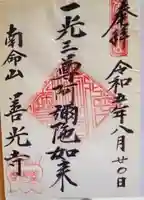 奉拝
令和五年八月廿日
一光三尊阿彌陀如来
南命山 善光寺